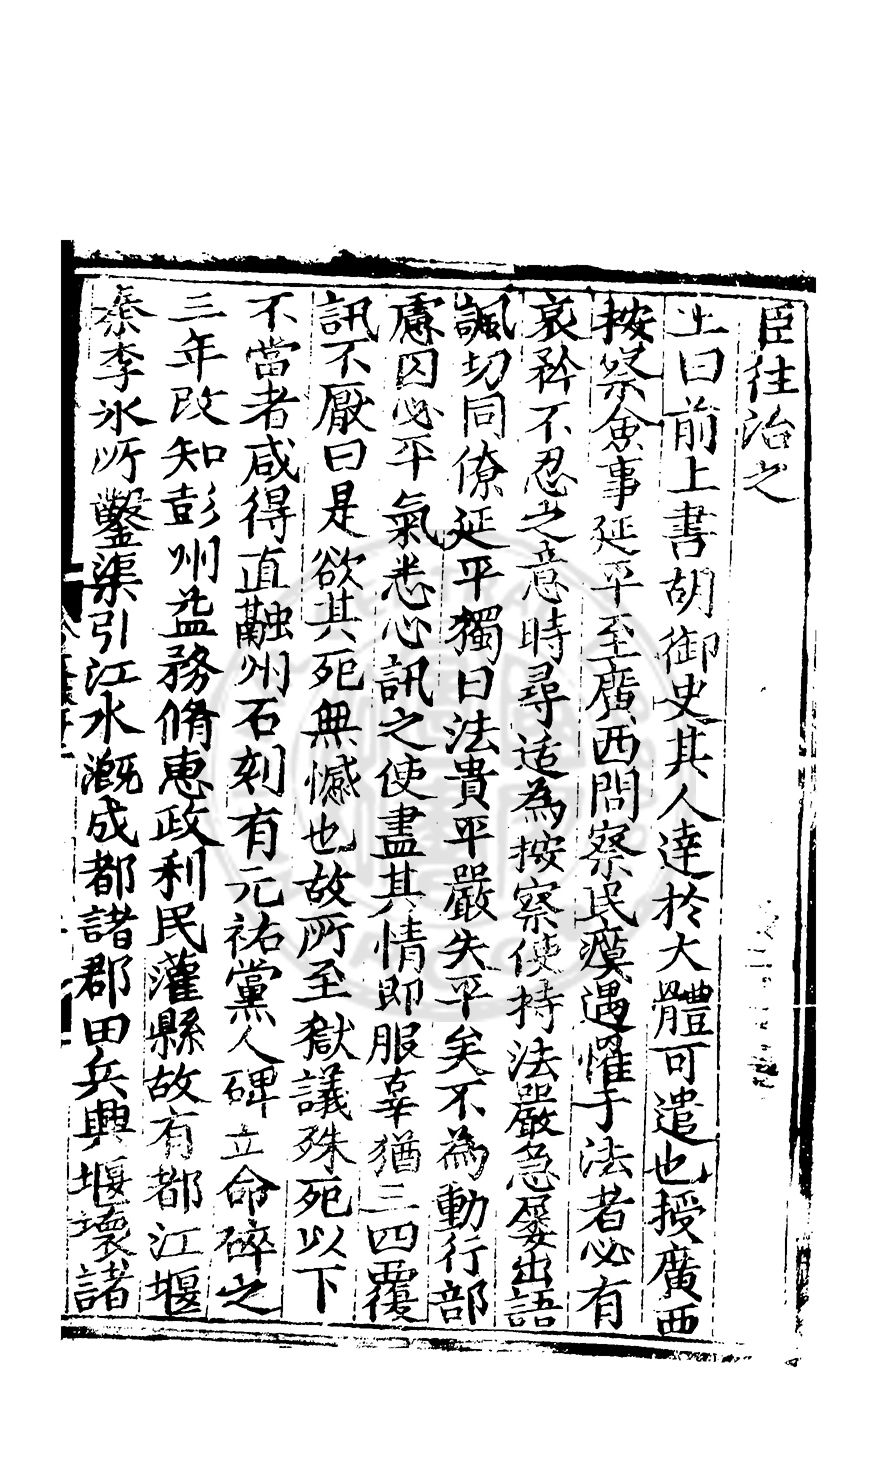 臣往治之
上曰前上書胡御史其人達於大體可遣也授廣西
按察僉事延平至廣西問察民瘼遇罹于法者必有
哀矜不忍之意時尋适為按察使持法嚴急屢出語
諷切同僚延平獨曰法貴平嚴失平矣不為動行部
慮囚必平氣悉心訊之使盡其情即服辜猶三四覆
訊不厭曰是欲其死無憾也故所至獄議殊死以下
不當者咸得直融州石刻有元祐黨人碑立命碎之
三年改知彭州益務脩惠政利民灌縣故有都江堰
秦李冰所鑿渠引江水溉成都諸郡田兵興堰壞諸